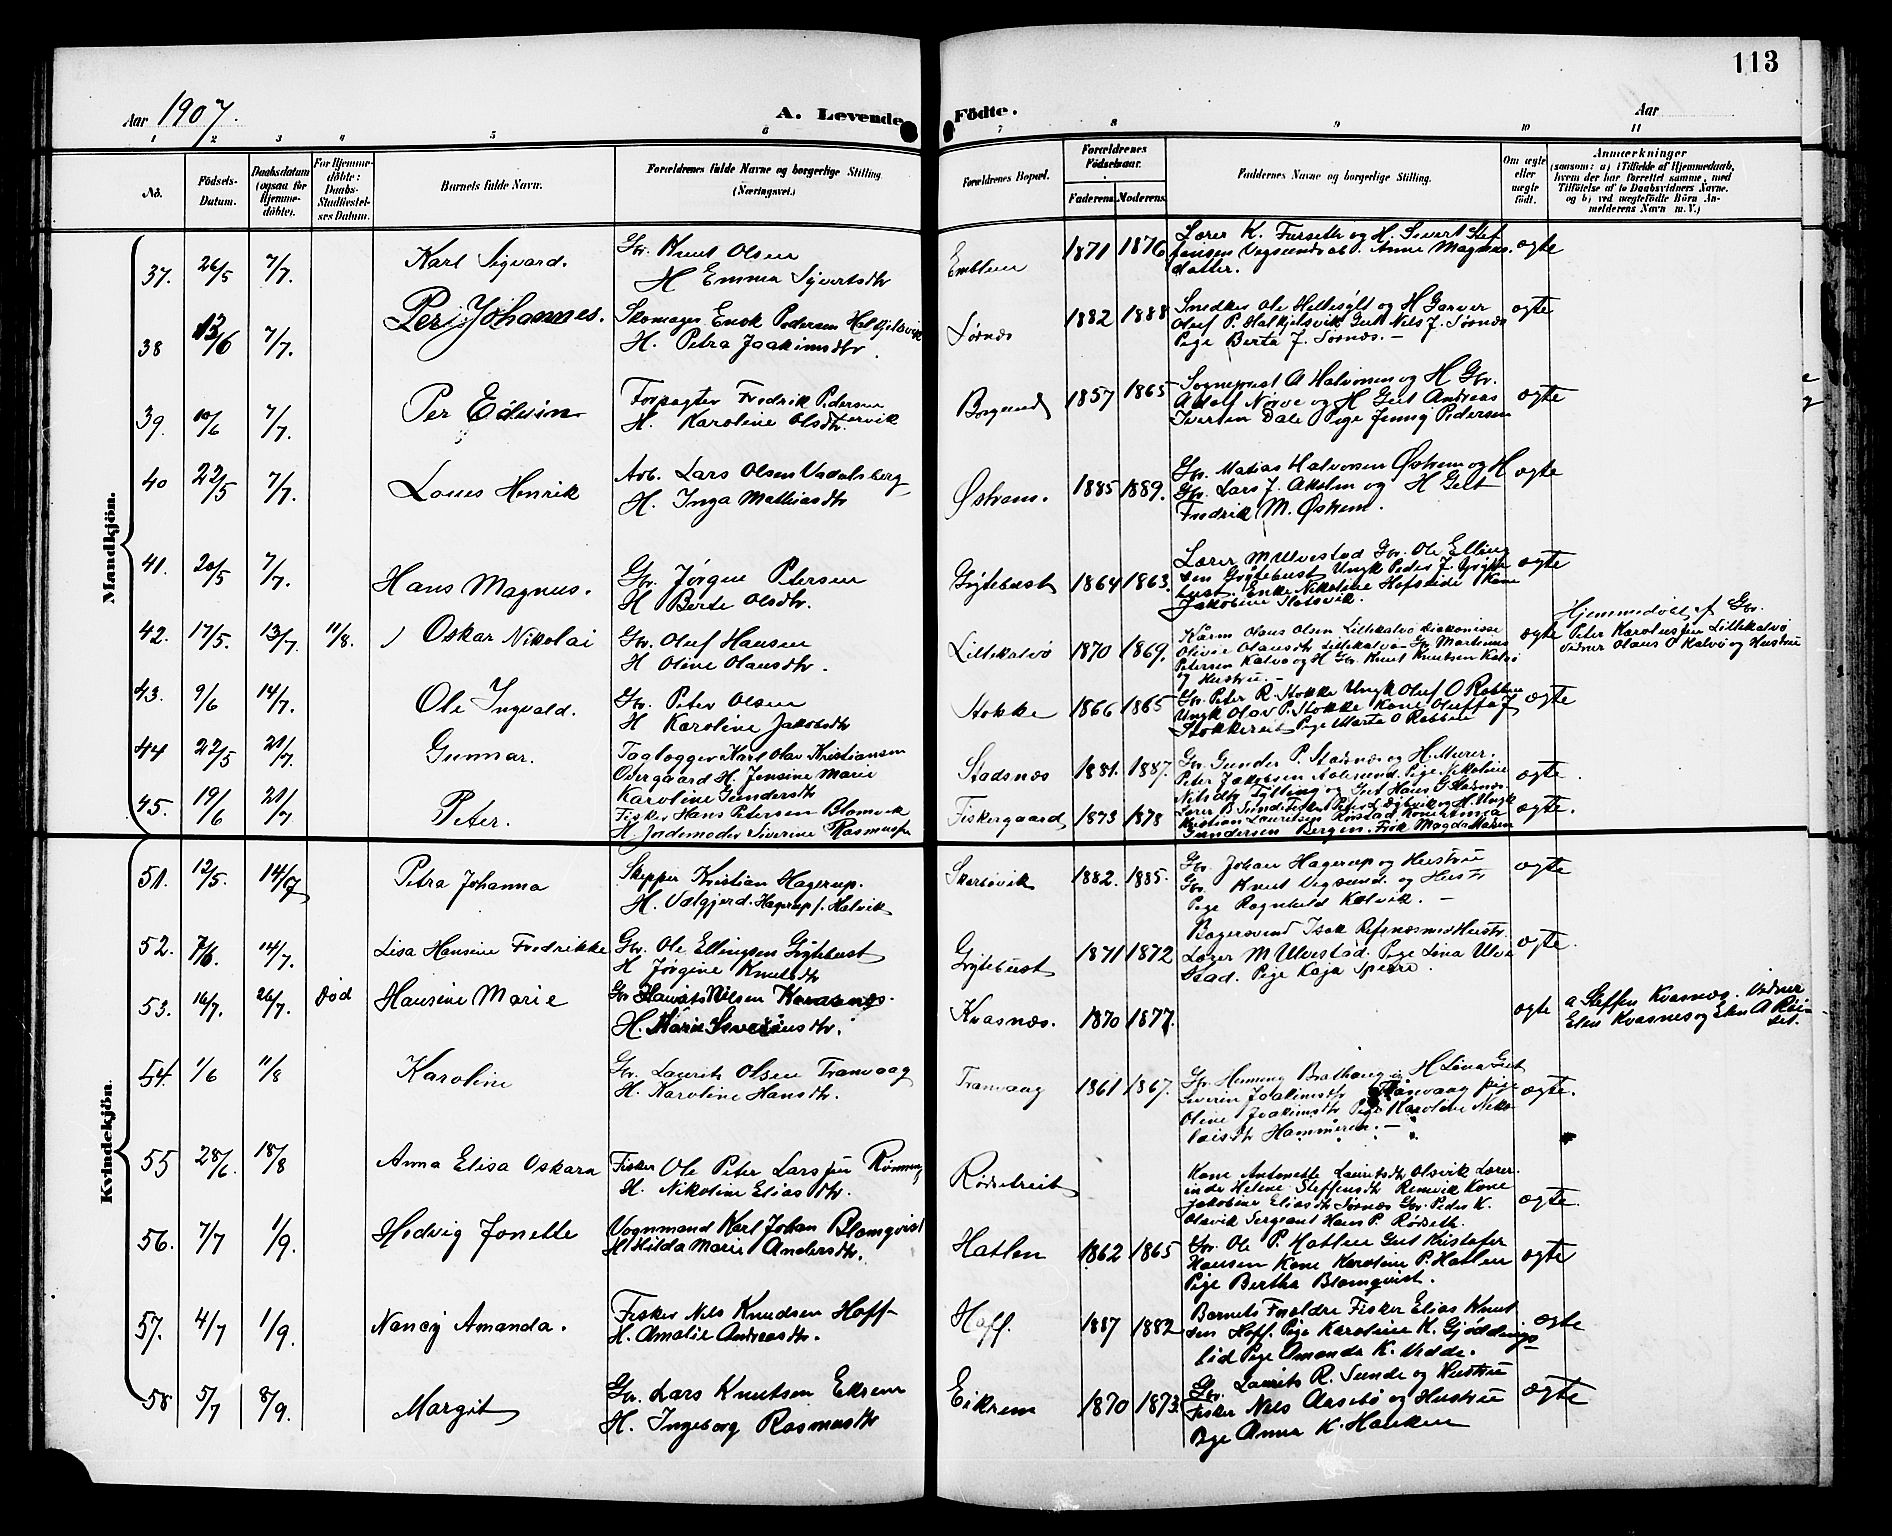 113
Aar 1907.
A. Levende Födte.
Aar
1 2 3 4 5 6 7 8 9 10 11
No.
Födsels-Datum.
Daabsdatum (ogsaa för Hjemme-döbte).
For Hjemme-döbte: Daabs-Stadfæstel-ses Datum.
Barnets fulde Navn.
Forældrenes fulde Navne og borgerlige Stilling (Næringsvei.)
Forældrenes Bopæl.
Forældrenes Födselsaar.
Faderens. Moderens.
Faddernes Navne og borgerlige Stilling.
Om ægte eller uægte födt.
Anmærkninger
(saasom: a) i Tilfælde af Hjemmedaab,
hvem der har forrettet samme, med
Tilföielse af to Daabsvidners Navne.
og b) ved uægtefödte Börn An-
melderens Navn m. V.)
Mandkjön.
37. 26/5 7/7. Karl Sigvard. Gbr. Knut Olsen
H Emma Sivertsdtr
Emblem 1871 1876
Lærer K. Furseth og H. Sivert Stef
fensen Vegsund ab P. Anne Magnus.
datter.
ægte
38 13/6 7/7. Per Johannes. Skomager Enok Pedersen Halkjelsvik
H. Petra Joakimsdtr.
Sørnes 1882 1888
Snedker Ole Hellesylt og H Garver
Oluf P. Halkjelsvik Gut Nils J. Sørnes
Pige Berta J. Sørnes. —
ægte
39. 10/6 7/7. Per Edvin Forpagter Fredrik Pedersen Lervik
H. Karoline Olsdtr.
Borgund 1857 1865
Sogneprest A Halvorsen og H Gbr.
Adolf Nørve og H Gut Andreas
Iversen Dale Pige Jenny Pedersen
ægte
40 22/5 7/7. Louis Henrik Arb. Lars Olsen Vadalsberg
H. Inga Mathiasdtr
Østrem. 1885 1889.
Gbr. Matias Halvorsen Østrem og H
Gbr. Lars J. Akslen og H Gut
Fredrik M. Østrem.
ægte
41. 20/5 7/7. Hans Magnus. Gbr. Jørgen Petersen
H Berte Olsdtr.
Grytebust 1864 1863.
Lærer M Ulvestad Gbr. Ole Elling
sen Grytebust Ungk Peder J. Gryte
bust. Enke Nikoline Hofstede Kone
Jakobine Slotsvik.
ægte
42. 17/5. 13/7 11/8. Oskar Nikolai Gbr. Oluf Hansen
H Oline Olausdtr.
Lillekalvø 1870 1869.
Kårm Olaus Olsen Lillekalvø Diakonisse
Olivie Olausdtr Lillekalvø Gbr Martinus
Petersen Kalvø og H Gbr. Knut Knutsen Kalvø
og Hustru. —
ægte
Hjemmedøbt af Gbr.
Peter Karolussen Lillekalvø
Vidner Olaus O Kalvø og Hustru
43. 9/6 14/7. Ole Ingvald. Gbr. Peter Olsen
H Karoline Jakobsdtr
Stokke 1866 1865
Gbr. Peter R. Stokke Ungk Oluf O Rabben
Ungk Olav P. Stokke Kone Oluffa J
Stokkereit Pige Marta O Rabben
ægte
44 22/5 21/7. Gunnar. Taglægger Karl Olav Kristiansen
Overgaard H. Jensine Marie
Karoline Gundersdtr
Stadsnes 1881. 1887.
Gbr. Gunder P. Stadsnes og H. Murer.
Peter Jakobsen Aalesund. Pige Nikoline
Nilsdtr Tylling og Gut Hans G Stadsnes
ægte
45. 19/6 21/7 Peter. Fisker Hans Petersen Blomvik
H. Jordemoder Severine Rasmussen
Fiskergaard 1873 1878
ægte.
Kvindekjön.
51. 12/5. 14/7 Petra Johanna Skipper Kristian Hagerup.
H. Valgjerd Hagerup f. Kalvik
Skarbøvik 1882. 1885.
Gbr. Johan Hagerup og Hustru
Gbr. Knut Vegsund. og Hustr
Pige Ragnhild Kalvik. —
ægte
52. 7/6. 14/7. Lisa Hansine Fredrikke Gbr. Ole Ellingsen Grytebust
H Jørgine Knutsdtr
Grytebust 1871 1872
Bagersvend Isak Refsnesmo Hustr.
Lærer M Ulvestad. Pige Lina Ulve
stad. Pige Kaja Sperre.
ægte
53. 16/7. 26/7. død Hansine Marie Gbr Haurits Nilsen Kvasnes.
H. Marie Severinsdtr.
Kvasnes. 1870 1877.
ægte
a Steffen Kvasnes. Vidner
Elen Kvasnes og Elen A Rei-
set.
54. 1/6 11/8 Karoline Gbr. Laurits Olsen Tranvaag
H. Karoline Hansdtr.
Tranvaag 1861 1867.
Gbr Henning Brathaug og H Lina Gut
Severin Joakimsdtr Tranvaag pige
Oline Joakimsdtr Pige Karoline Niko
laisdtr Hammeren. —
ægte.
55 28/6. 18/8 Anna Elisa Oskara Fisker Ole Peter Larssen Rønning
H. Nikoline Elias dtr.
Rødsetreit
Kone Antonette Lauritsdtr Olsvik Lærer
inde Helene Steffensdtr Remvik Kone
Jakobine Eliasdtr Sørnes Gbr. Peder K.
Olsvik Sergeant Hans P. Rødseth.
ægte.
56. 7/7 1/9. Hedvig Jonette Vognmand Karl Johan Blomqvist
H Hilda Marie Andersdtr.
Hatlen 1862 1865
Gbr. Ole P. Hatlen Gut Kristofer
Hansen Kone Karoline P. Hatlen
Pige Bertha Blomqvist.
ægte
57. 4/7 1/9. Nancy Amanda. Fisker Nils Knudsen Hoff
H. Amalie Andreasdtr.
Hoff. 1887 1882
Barnets Forældre Fisker Elias Knut
sen Hoff. Pige Karoline K. Gjødings
lid Pige Amanda K. Vedde.
ægte
58 5/7 8/9. Margit Gbr. Lars Knutsen Eikrem
H. Ingeborg Rasmusdtr
Eikrem 1870 1873.
Gbr. Laurits R. Sunde og Hustru
Fisker Nils Aarsebø og Hustru
Pige Anna K. Hanken
ægte